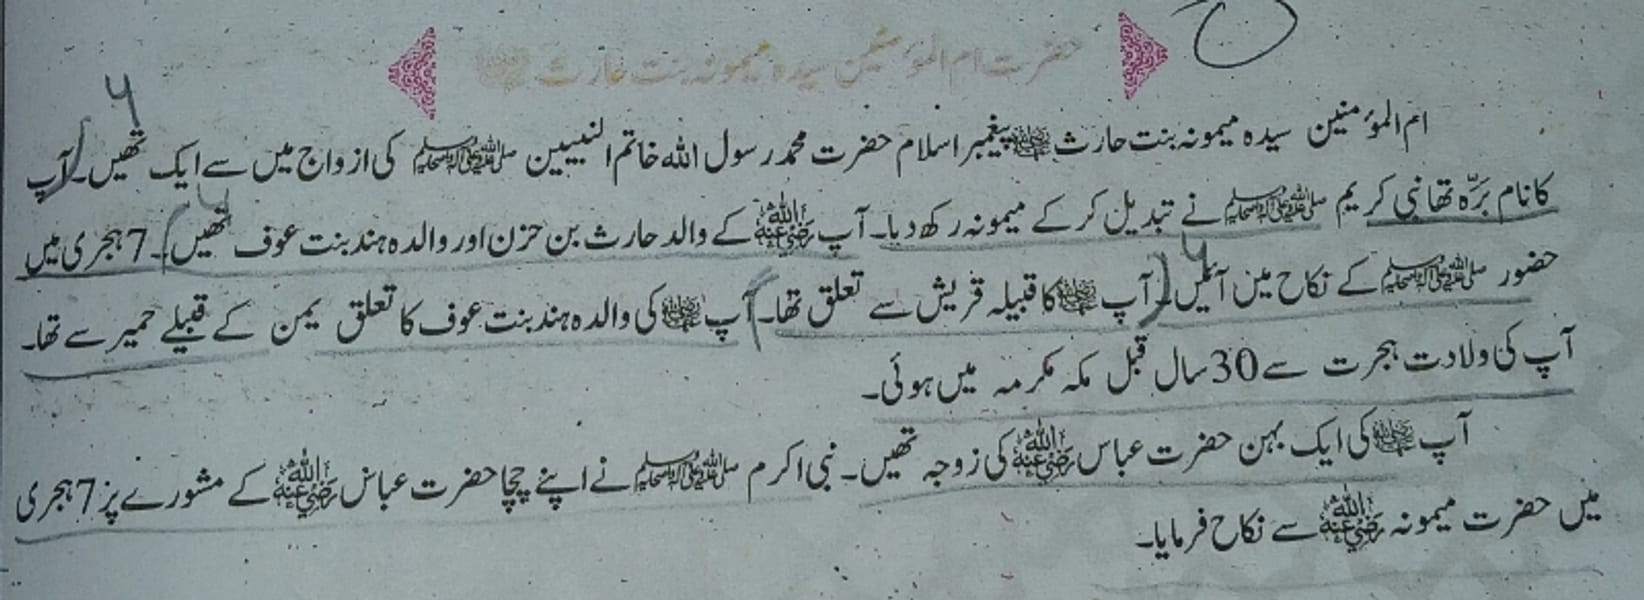 حضرت ام المؤمنین سیدہ میمونہ بنت حارث
ام المؤمنین سیدہ میمونہ بنت حارث رضی اللہ عنہا پیغمبر اسلام حضرت محمد رسول اللہ خاتم النبیین صلی اللہ علیہ وآلہ وسلم کی ازواج میں سے ایک تھیں۔ آپ
کا نام بَرّہ تھا نبی کریم صلی اللہ علیہ وآلہ وسلم نے تبدیل کر کے میمونہ رکھ دیا۔ آپ رضی اللہ عنہ کے والد حارث بن حزن اور والدہ ہند بنت عوف تھیں۔ 7 ہجری میں
حضور صلی اللہ علیہ وآلہ وسلم کے نکاح میں آئیں۔ آپ رضی اللہ عنہا کا قبیلہ قریش سے تعلق تھا۔ آپ رضی اللہ عنہا کی والدہ ہند بنت عوف کا تعلق یمن کے قبیلے حمیر سے تھا۔
آپ کی ولادت ہجرت سے 30 سال قبل مکہ مکرمہ میں ہوئی۔
آپ رضی اللہ عنہا کی ایک بہن حضرت عباس رضی اللہ عنہ کی زوجہ تھیں۔ نبی اکرم صلی اللہ علیہ وآلہ وسلم نے اپنے چچا حضرت عباس رضی اللہ عنہ کے مشورے پر 7 ہجری
میں حضرت میمونہ رضی اللہ عنہ سے نکاح فرمایا۔